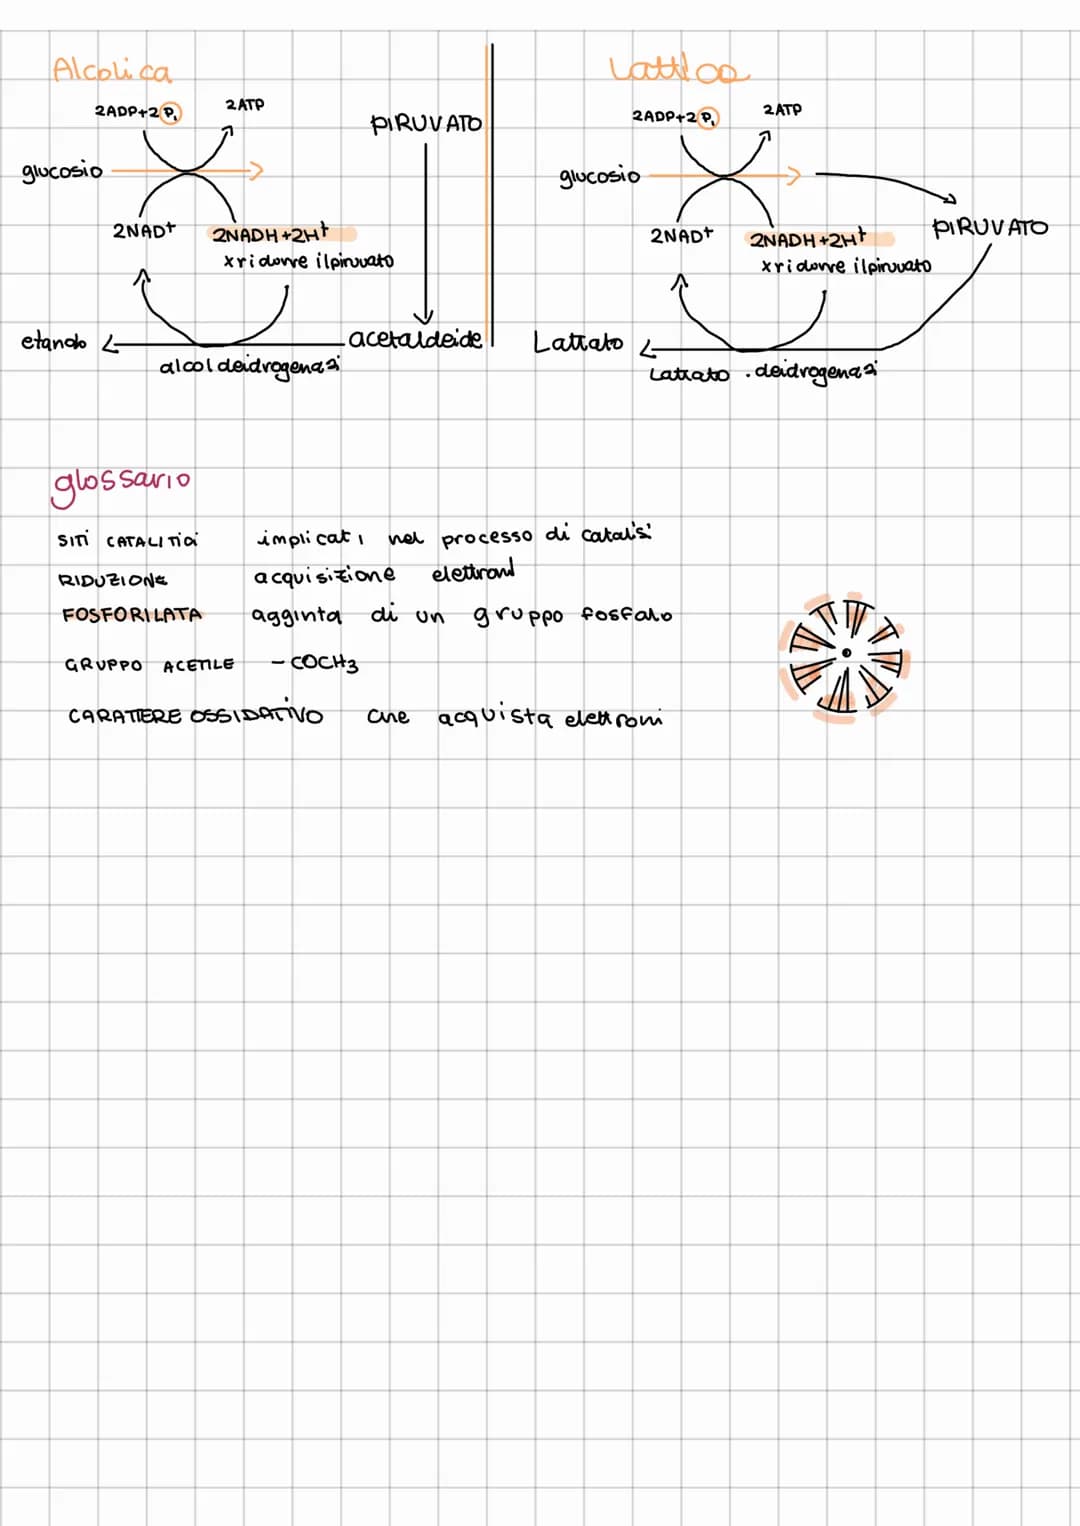 Alcolica
2ADP+2 Pi
2ATP
PIRUVATO
glucosio
2NAD+
2NADH+2H+
x ridurre il piruvato
etanolo
acetaldeide
alcol deidrogenasi
Lattica
2ADP+2 Pi
2ATP
glucosio
PIRUVATO
2NAD+
2NADH+2H+
x ridurre il piruvato
Lattato
Lattato . deidrogenasi
glossario
SITI CATALITICI implicati nel processo di catalisi
RIDUZIONE acquisizione elettroni
FOSFORILATA agginta di un gruppo fosfato
GRUPPO ACETILE - COCH3
CARATTERE OSSIDATIVO che acquista elettroni